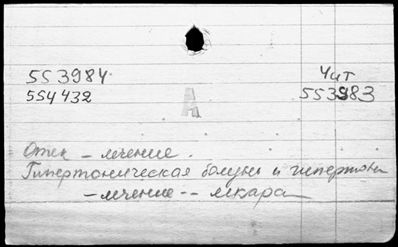 553984 Чит
554432 А 553383
Отек – лечение.
Гипертоническая болезнь и гипертони
– лечение --